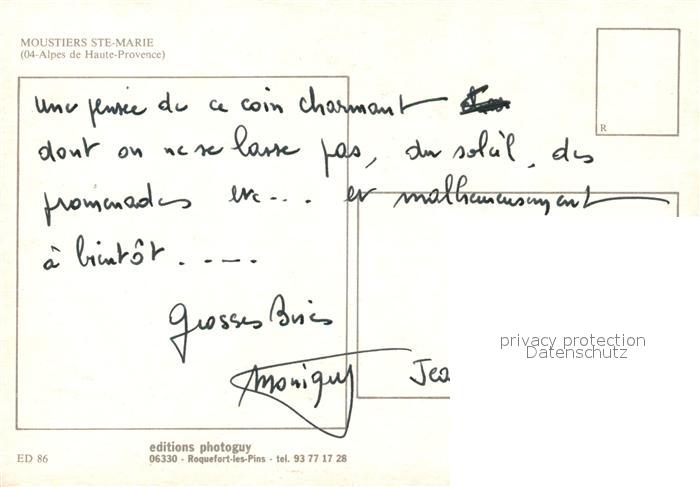 MOUSTIERS STE-MARIE
(04-Alpes de Haute-Provence)
R
une pensée de ce coin charmant
dont on ne se lasse pas, du soleil, des
promenades etc... et malheureusement
à bientôt . - - - .
Grosses Bises
Jea
privacy protection
Datenschutz
ED 86
editions photoguy
06330 - Roquefort-les-Pins - tel. 93 77 17 28